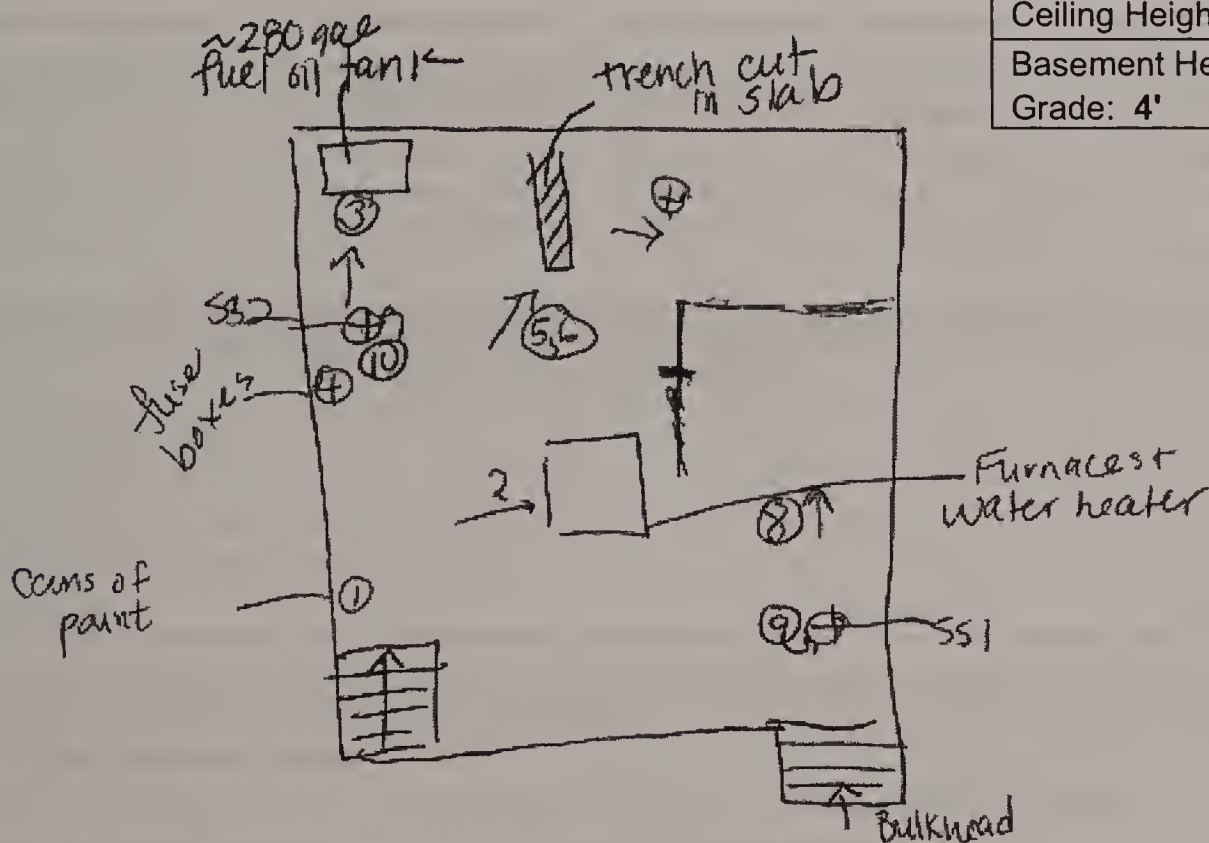 Ceiling Heigh
Basement He
Grade: 4'
~280 gal
fuel oil tank
trench cut
in slab
3
SS2
5,6
10
fuse
boxes
4
2
Furnaces +
water heater
8
cans of
paint
1
9
SS1
Bulkhead